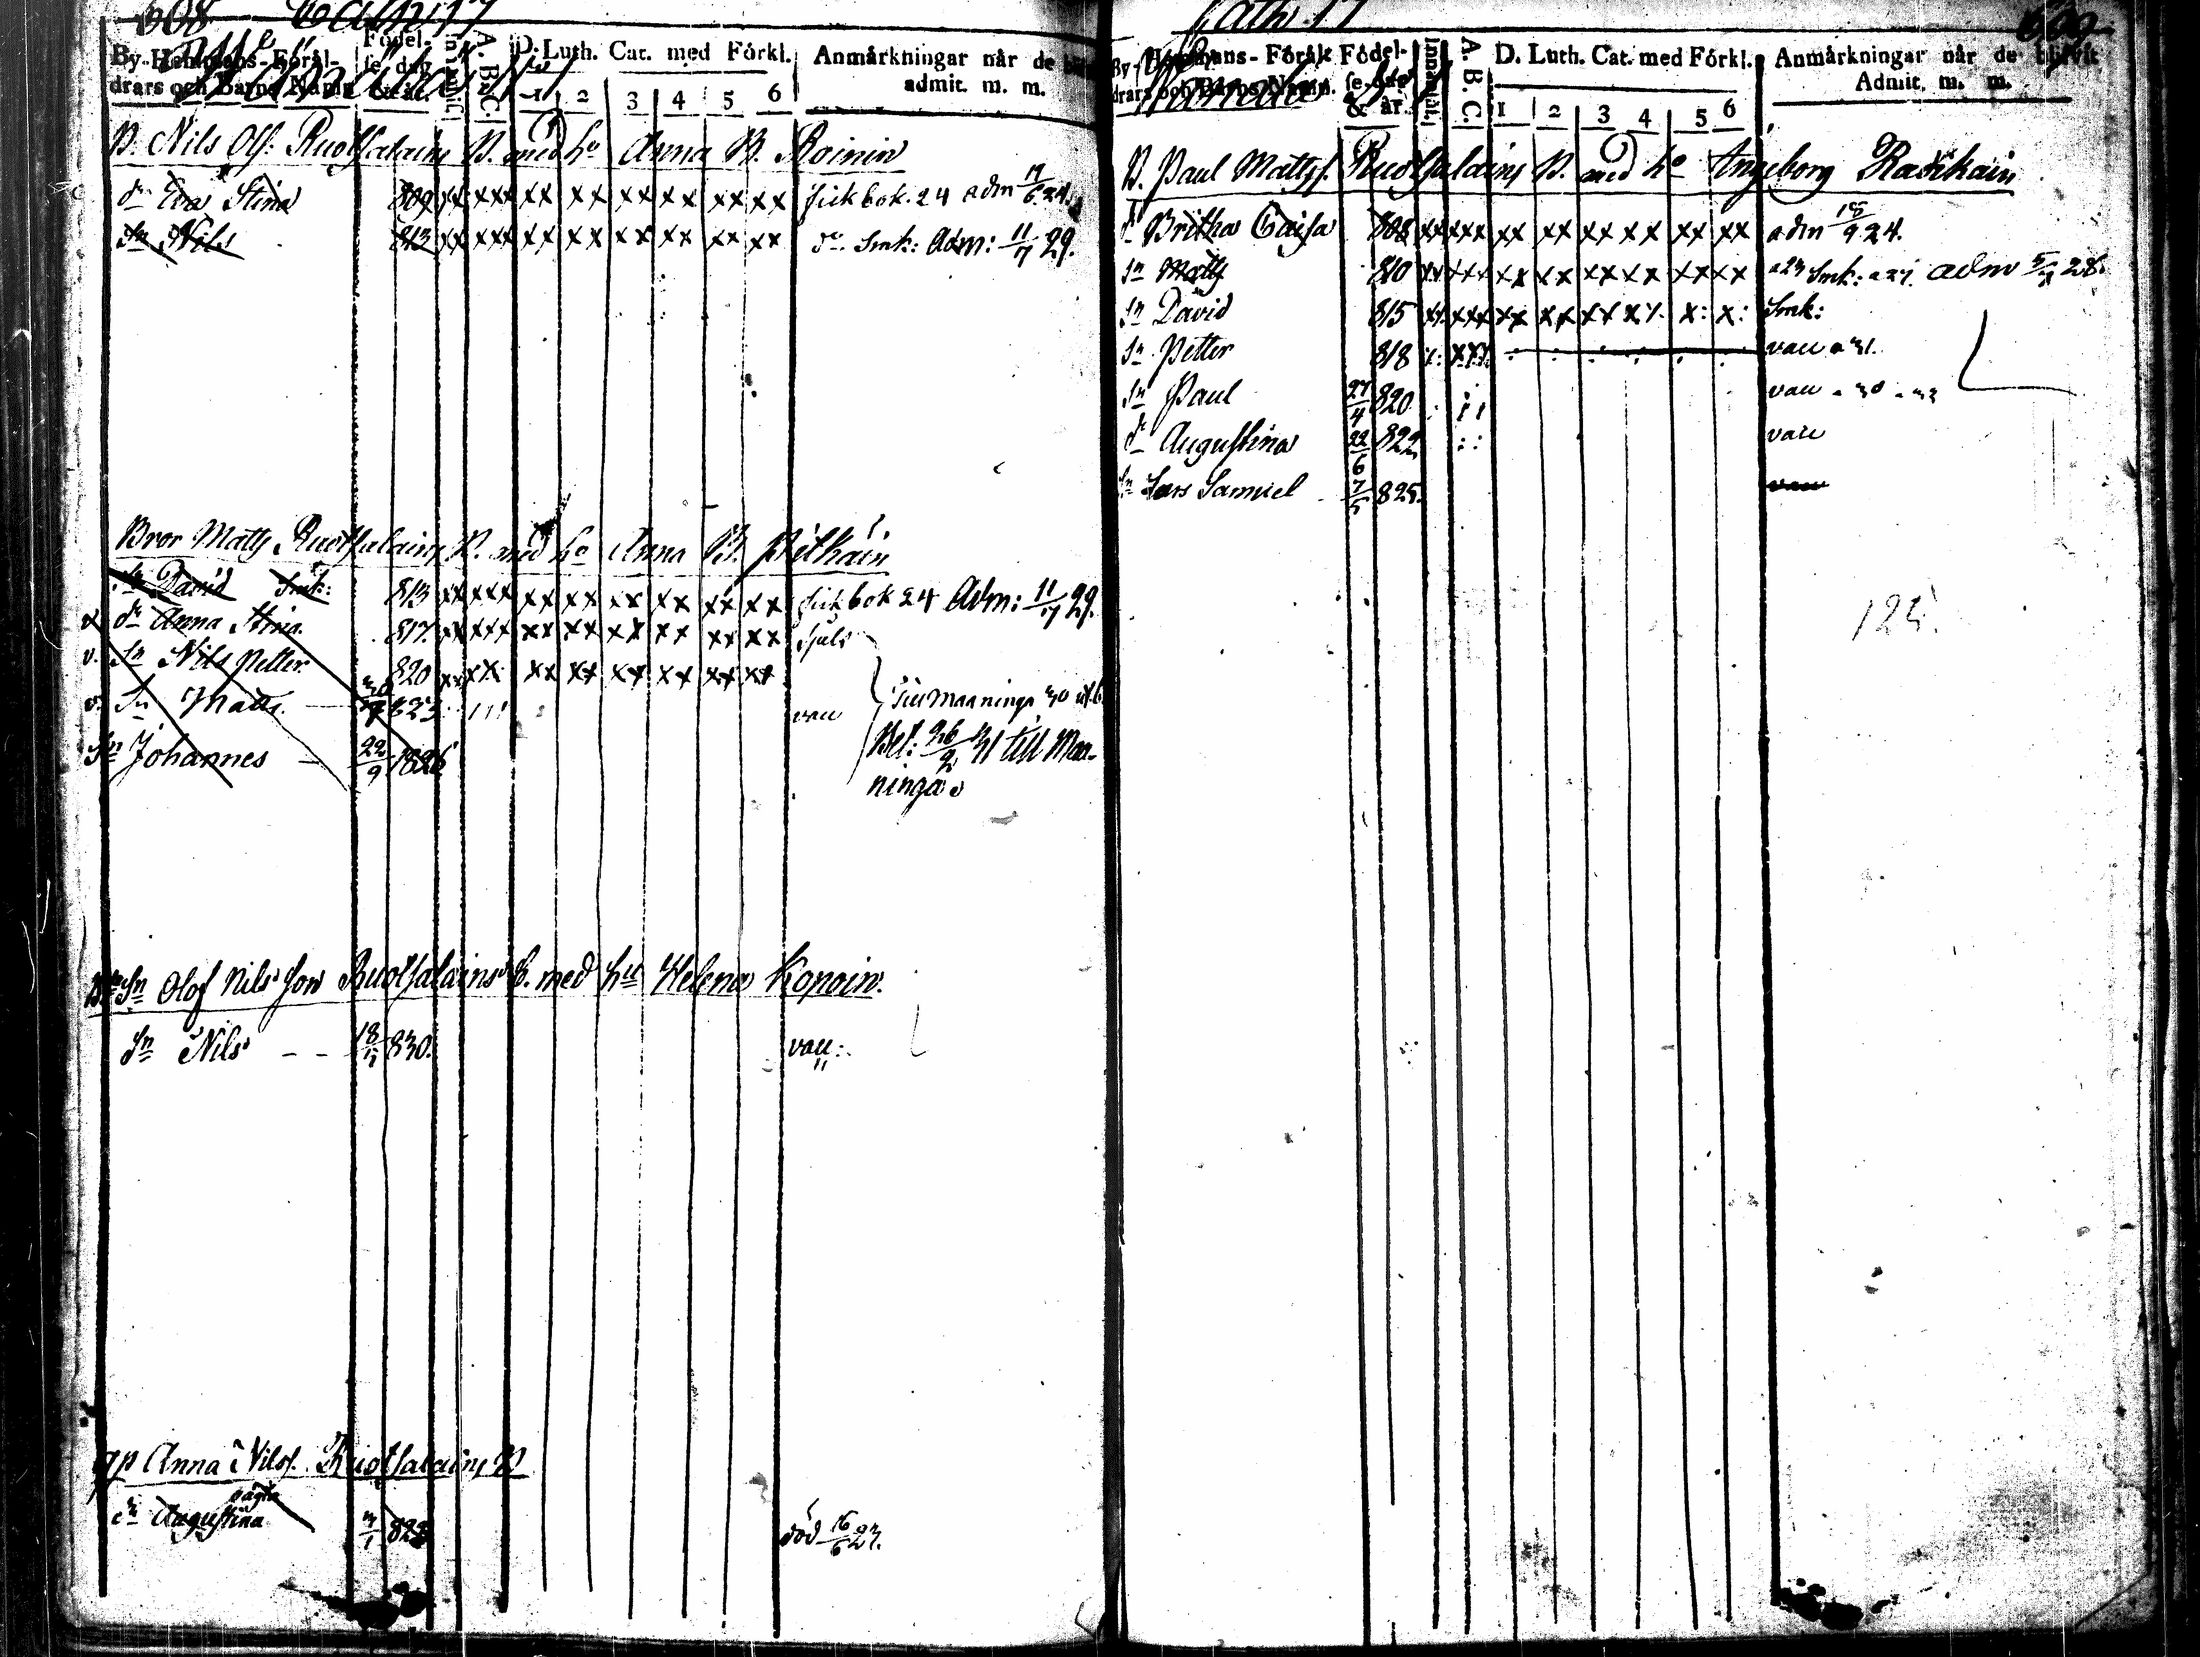 608
By-Hemmans-Föräl-
drars och Barns Namn
Födel-
se-dag
& år.
A. B. C.
D. Luth. Cat. med Förkl.
1 2 3 4 5 6
Anmårkningar når de
admit. m. m.
B. Nils Olss: Ruotsalains B. med ho Anna B. Roinin
dr Eva Stina 809 xx xxx xx xx xx xx xx xx fick bok. 24 adm 17/6 24.
Sn Nils 813 xx xxx xx xx xx xx xx xx do. Smk: Adm: 11/7 29.
Bror Matts Ruotsalains B. med ho Anna B. Pitkäin
Sn David Smk: 813 xx xxx xx xx xx xx xx xx fick bok 24 Adm: 11/7 29.
dr Anna Stina 817. xx xxx xx xx xx xx xx xx
v. Sn Nils Petter 820 xx xx xx xx xx xx xx xx
v. Sn Matts 823 vacc Till Maaninga 30
Sn Johannes 22/9 1826 Bet: 26/2 31 till Maa-
ninga
Sn Olof Nilsson Ruotsalains B. med hu Helena Kopoin.
Sn Nils 830. vacc:
Anna Nilss. Ruotsalains B
dr Augustina 3/1 823 död 16/6 23.
Cath. 17
609
By-Hemmans-Föräl-
drars och Barns Namn.
Födel-
se-dag
& år.
Innantil.
A. B. C.
D. Luth. Cat. med Förkl.
1 2 3 4 5 6
Anmårkningar når de blifvit
Admit. m. m.
B. Paul Mattss. Ruotsalains B. med ho Ingeborg Räsikäin
dr Britha Caisa 808 xx xxx xx xx xx xx xx xx adm 18/9 24.
Sn Matts 810 xx xxx xx xx xx xx xx xx a 23 Smk: a 27. adm 5/7 28.
Sn David 815 xx xxx xx xx xx xx x: x: Smk:
Sn Petter 818 vacc a 31.
Sn Paul 27/4 820 vacc
dr Augustina 22/6 822 vacc
Sn Lars Samuel 7/5 825. vacc